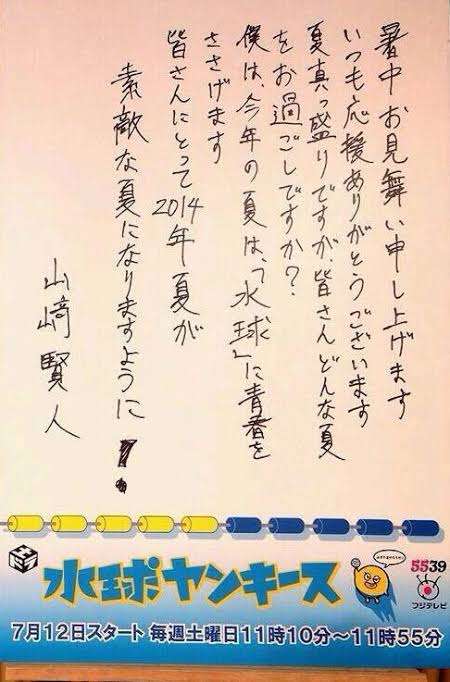 暑中お見舞い申し上げます
いつも応援ありがとうございます
夏真っ盛りですが、皆さんどんな夏
をお過ごしですか？
僕は、今年の夏は、「水球」に青春を
ささげます
皆さんにとって2014年夏が
素敵な夏になりますように！
山﨑賢人
水球ヤンキース
5539
フジテレビ
7月12日スタート 毎週土曜日11時10分〜11時55分